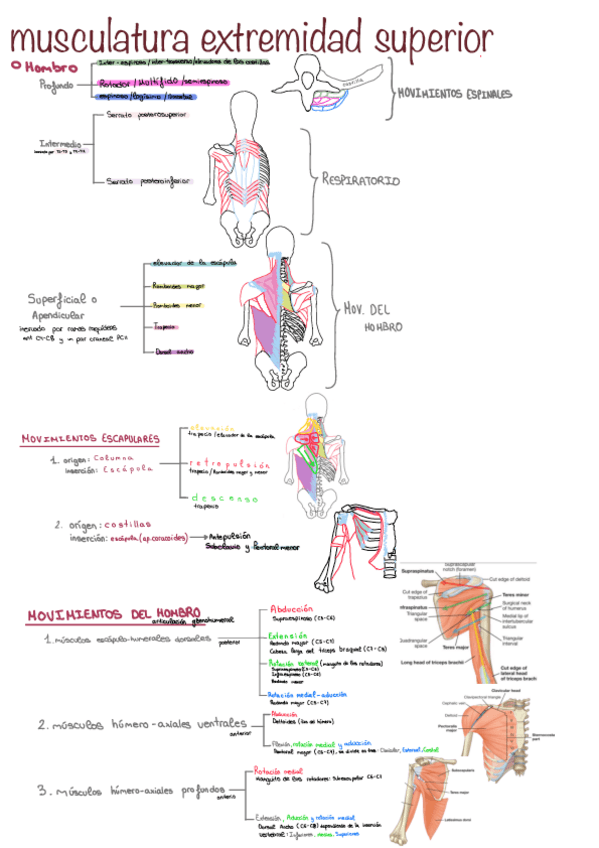 musculatura extremidad superior
O Hombro
Profundo
Inter-espinoso / inter-transverso / elevadores de las costillas
Rotador / Multifido / semiespinoso
espinoso / longisimo / iliocostal
MOVIMIENTOS ESPINALES
Intermedio
Serrato posterosuperior
Serrato posteroinferior
RESPIRATORIO
Superficial o
Apendicular
inervado por ramos
C4-C8 y por craneal
elevador de la escápula
Romboides mayor
Romboides menor
Trapecio
Dorsal ancho
MOV. DEL
HOMBRO
MOVIMIENTOS ESCAPULARES
1. origen: Columna
inserción: Escápula
elevación
trapecio / elevador de la escápula
retropulsión
trapecio / Romboides mayor y menor
descenso
trapecio
2. origen: costillas
inserción: escápula (ap. coracoides)
Antepulsión
Subclavio y Pectoral menor
MOVIMIENTOS DEL HOMBRO
articulación glenohumeral
1. músculos escápulo-humerales dorsales
posterior
Abducción
Supraespinoso (C5-C6)
Extensión
Redondo mayor (C5-C7)
Cabeza larga del tríceps braquial (C7-C8)
Rotación lateral (manguito de los rotadores)
Supraespinoso (C5-C6)
Infraespinoso (C5-C6)
Redondo menor
Rotación medial-aducción
Redondo mayor (C5-C7)
2. músculos húmero-axiales ventrales
anterior
Abducción
Deltoides
Flexión, rotación medial y aducción
Pectoral mayor (C6-C7), se divide en tres: Clavicular, Esternal, Costal
3. músculos húmero-axiales profundos
anterior
Rotación medial
manguito de los rotadores: Subescapular C6-C7
Extensión, Aducción y rotación medial
Dorsal Ancho (C6-C8) dependiendo de la inserción
vertebral: Inferiores, medias, Superiores
Suprascapular
notch (foramen)
Supraspinatus
Cut edge of deltoid
Cut edge of
trapezius
Teres minor
Surgical neck
of humerus
Triangular
space
Medial lip of
intertubercular
sulcus
Quadrangular
space
Triangular
interval
Teres major
Long head of triceps brachii
Cut edge of
lateral head
of triceps brachii
Clavicular head
Clavipectoral triangle
Cephalic vein
Deltoid
Pectoralis
major
Sternocostal
part
Subscapularis
Teres major
Latissimus dorsi